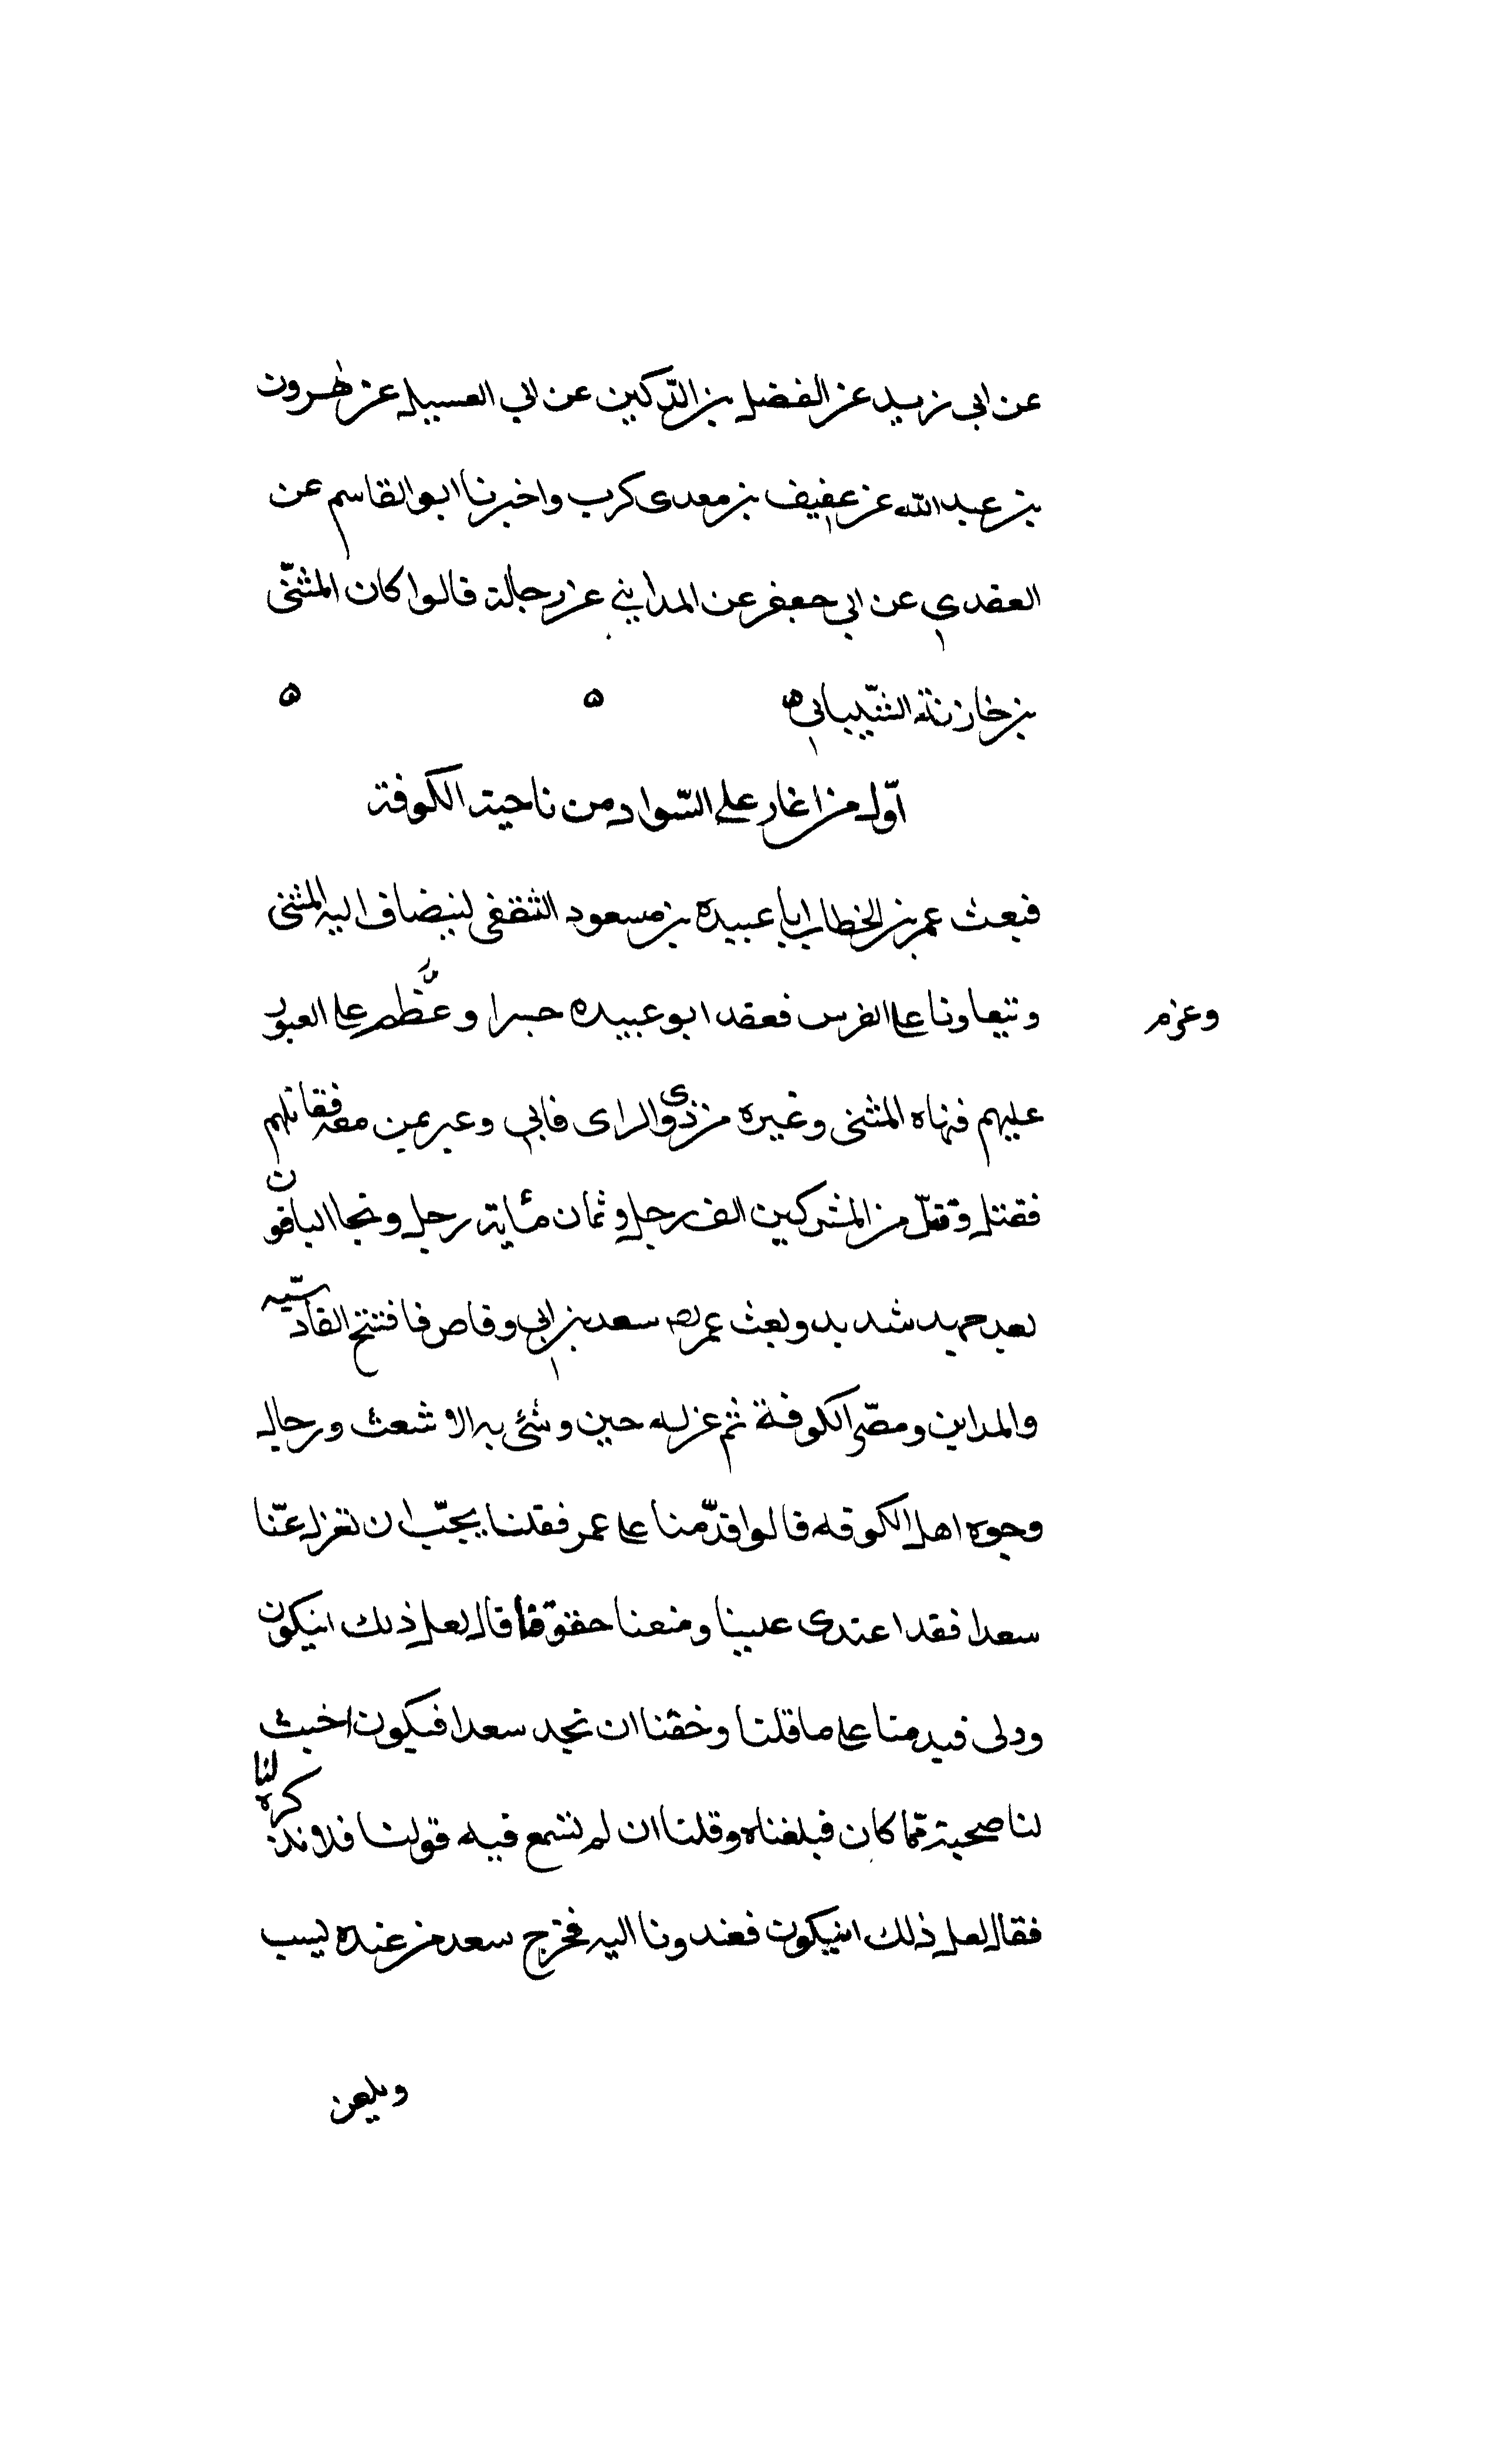 عن ابى زيد عن الفضل بن الدكين عن ابي العسيل عن هرون
بن عبد الله عن عفيف بن معدى كرب واخبرنا ابو القاسم عن
العقدي عن ابي جعفر عن المدايني عن رجاله قالوا كان المثنّى
بن خارثة الشّيباني ه ه ه
اوّل من اغار على السّواد من ناحية الكوفة
فبعث عمر بن الخطاب ابا عبيده بن مسعود الثقفى لينضاف اليه المثنى
وتيعاونا على الفرس فعقد ابو عبيده جسرا وعظّم على العبور
وعزم
عليهم فنهاه المثنى وغيره من ذوى الراى فابي وعبر بمن معه فقاتلهم
فقتل وقتل من المشركين الف رجل وثمان مئاية رجل ونجا الباقون
بعد جهد شديد وبعث عمر سعد بن ابي وقاص فافتتح القادسّيه
والمداين ومصّر الكوفة ثم عزله حين وشئ به الاشعث ورجال
وجوه اهل الكوفه قالوا قدّمنا على عمر فقلنا يجبّ ان تعزل عنّا
سعدا فقد اعتدى علينا ومنعنا حقوقنا قال لعل ذلك انيكون
ودلى فيدمنا على ما قلنا وخفنا ان نجد سعدا فيكون اخبث
لنا صحبة مّما كان فبلغناه وقلنا ان لم تسمع فيه قولنا فلا تذكره لنا
فقال لعل ذلك انيكون فغدونا اليه فخرج سعد من عنده ليسب
ويلعن